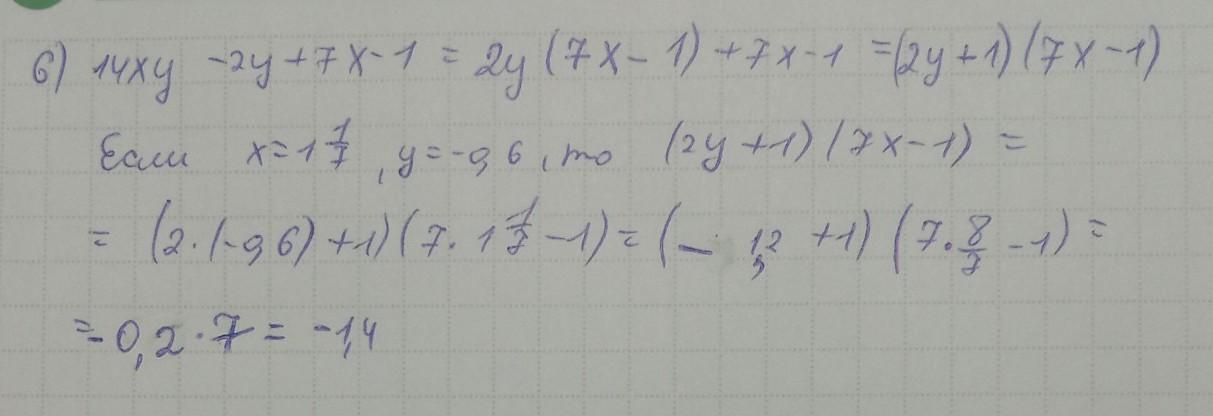 б) 14xy -2y+7x-1 = 2y(7x-1)+7x-1 =(2y+1)(7x-1)
Если x=1 1/7, y=-0,6, то (2y+1)(7x-1) =
= (2·(-0,6)+1)(7·1 1/7 -1)= (- 1,2 +1) (7·8/7 -1) =
=-0,2·7= -1,4